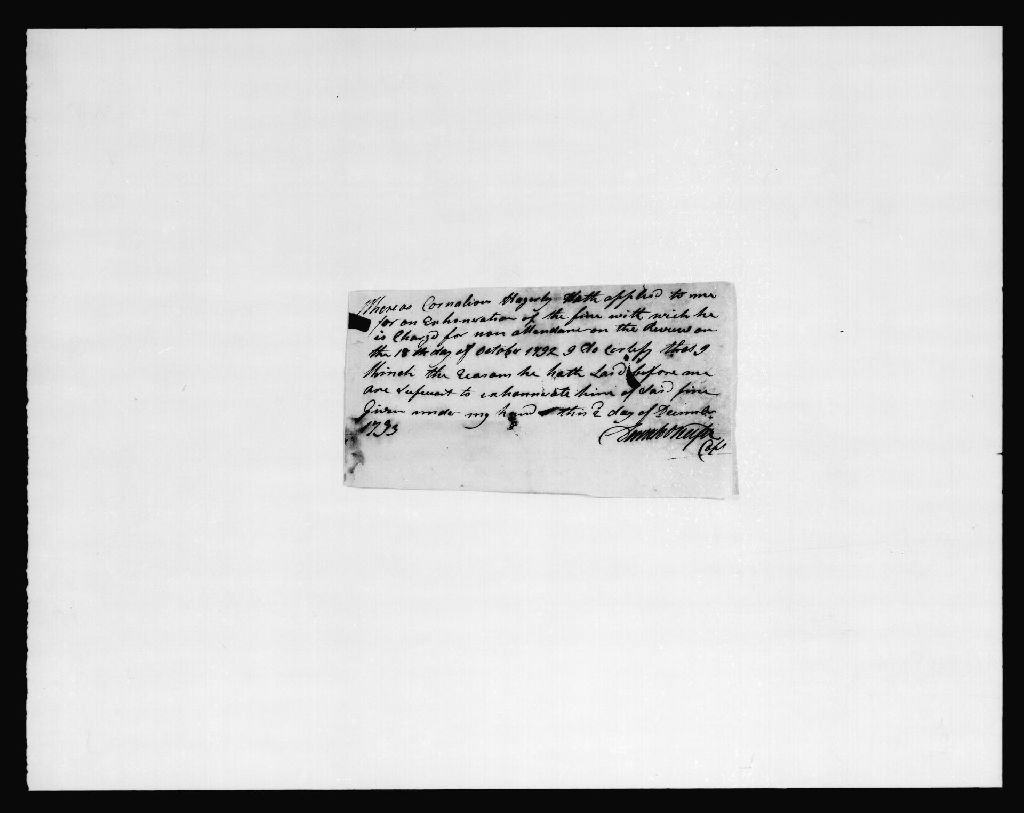 Whereas Cornalious Hagerty Hath applied to me
for an Exhoneration of the fine with wich he
is Charg'd for non attendance on the Review on
the 18th day of October 1792 I do Certify that I
think the reasons he hath Laid before me
are sufucent to exhonorate him of said fine
Given under my hand this 2 day of December
1793
Capt